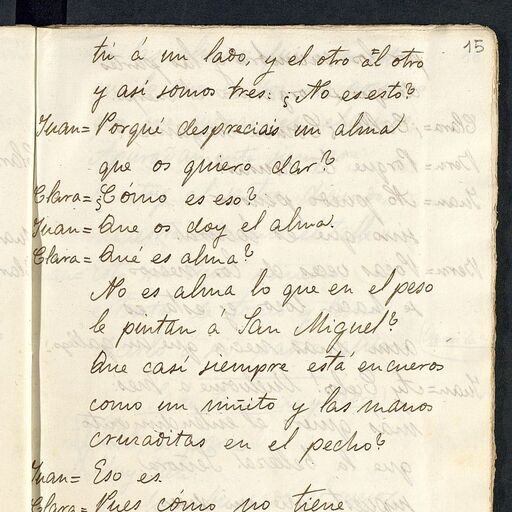 15
tú á un lado, y el otro al otro
y así somos tres: ¿No es esto?
Juan= Porqué despreciais un alma
que os quiero dar?
Clara= ¿Cómo es eso?
Juan= Que os doy el alma.
Clara= Qué es alma?
No es alma lo que en el peso
le pintan á San Miguel?
Que casí siempre está encueros
como un niñito y las manos
cruzaditas en el pecho?
Juan= Eso es.
Clara= Pues cómo no tiene